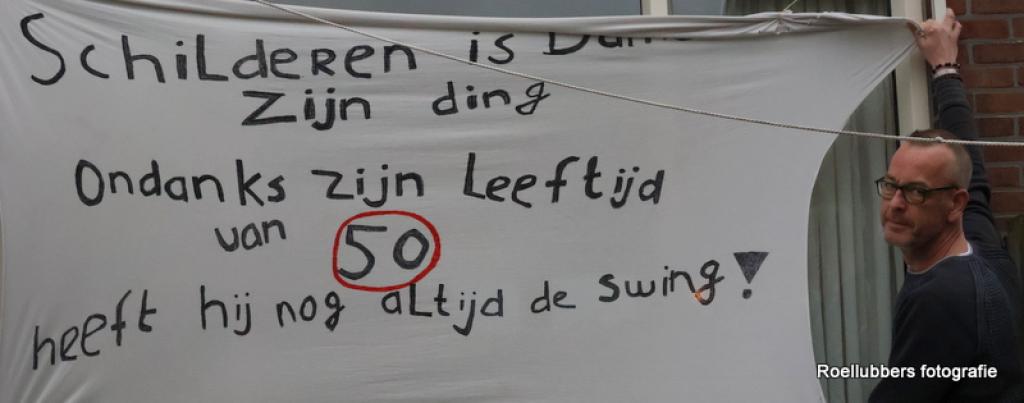 Schilderen is
zijn ding
Ondanks zijn Leeftijd
van 50
heeft hij nog altijd de swing!
Roellubbers fotografie